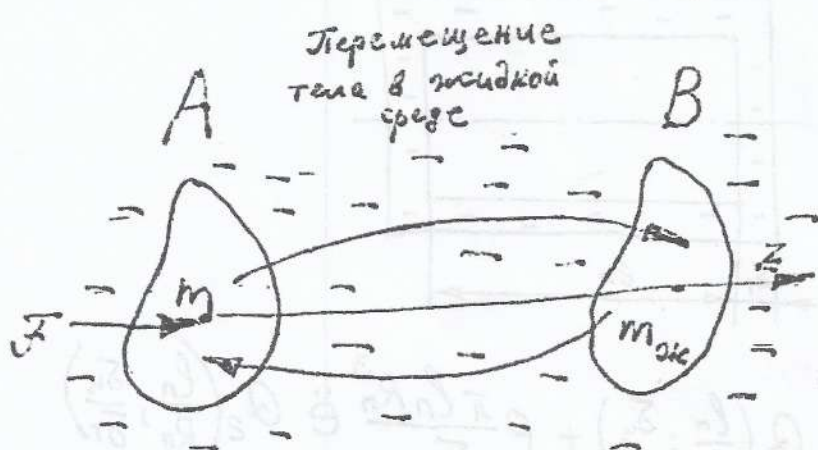 Перемещение
тела в жидкой
среде
A
B
m
Z
F
m ж